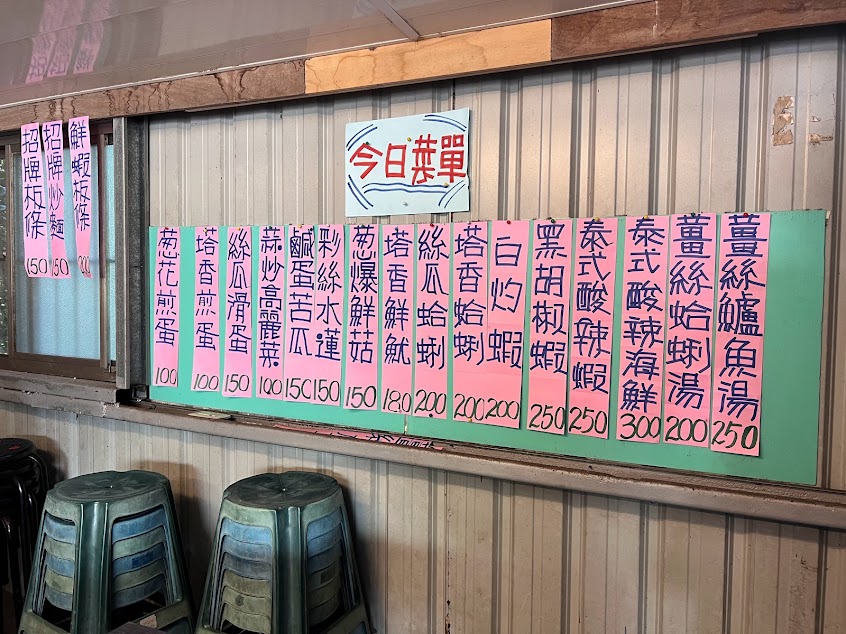 今日菜單
薑絲鱸魚湯 250
薑絲蛤蜊湯 200
泰式酸辣海鮮 300
泰式酸辣蝦 250
黑胡椒蝦 250
白灼蝦 200
塔香蛤蜊 200
絲瓜蛤蜊 200
塔香鮮魷 180
葱爆鮮菇 150
彩絲水蓮 150
鹹蛋苦瓜 150
蒜炒高麗菜 100
絲瓜滑蛋 150
塔香煎蛋 100
葱花煎蛋 100
鮮蝦板條
招牌炒麵 150
招牌板條 150